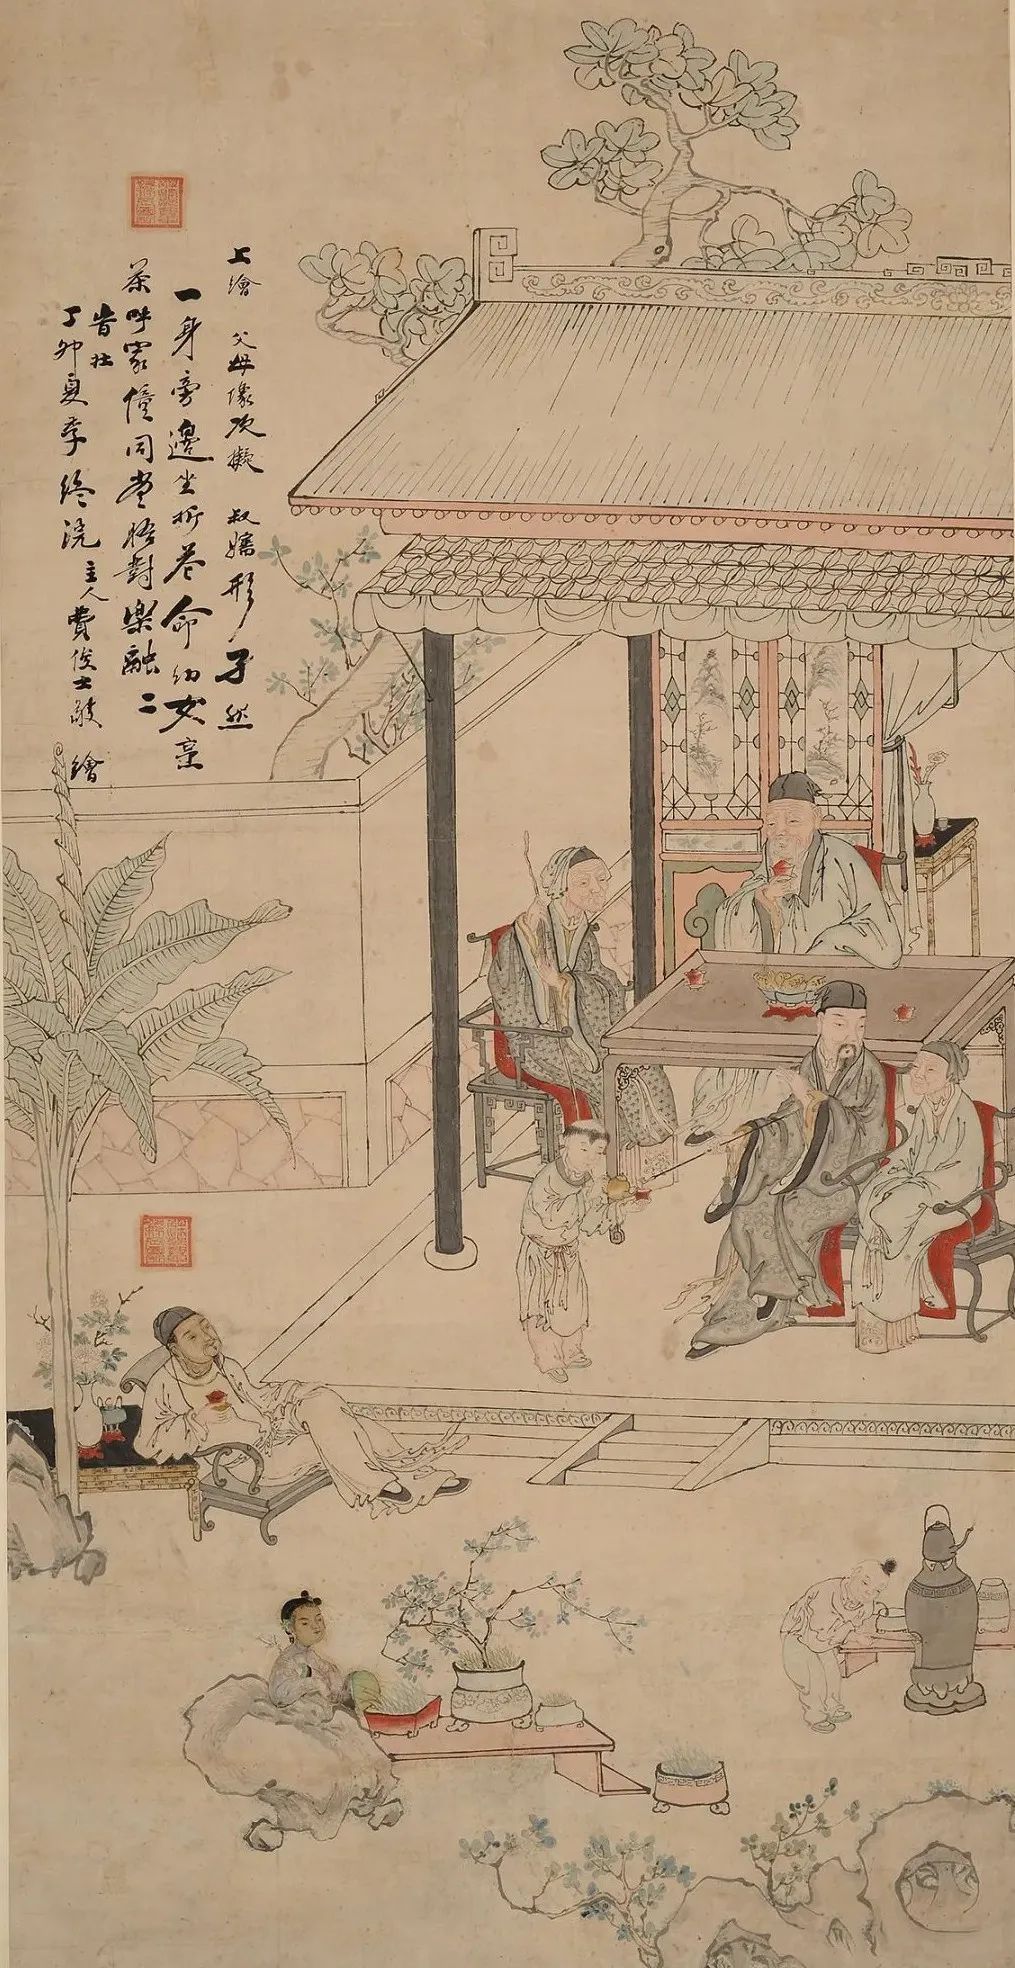 上繪 父母像次擬 叔嬸形孑然
一身旁邊坐折卷命幼女烹
茶呼家僮同堂晤對樂融二
旹在
丁卯夏季終浣 主人費俊士敬繪